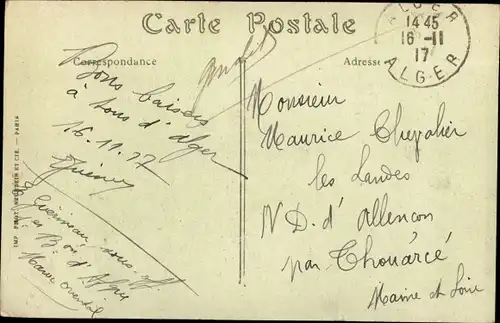 Carte Postale
Correspondance
Adresse
ALGER
14 45
16-11
17
ALGER
Bons baisers
à tous d'Alger
16.11.17
Monsieur
Maurice Chevalier
les Landes
N.D. d'Allençon
par Thouarcé
Maine et Loire
sous-off
d'Afrique
Maroc oriental
IMP. PHOT. NEURDEIN ET CIE. — PARIS